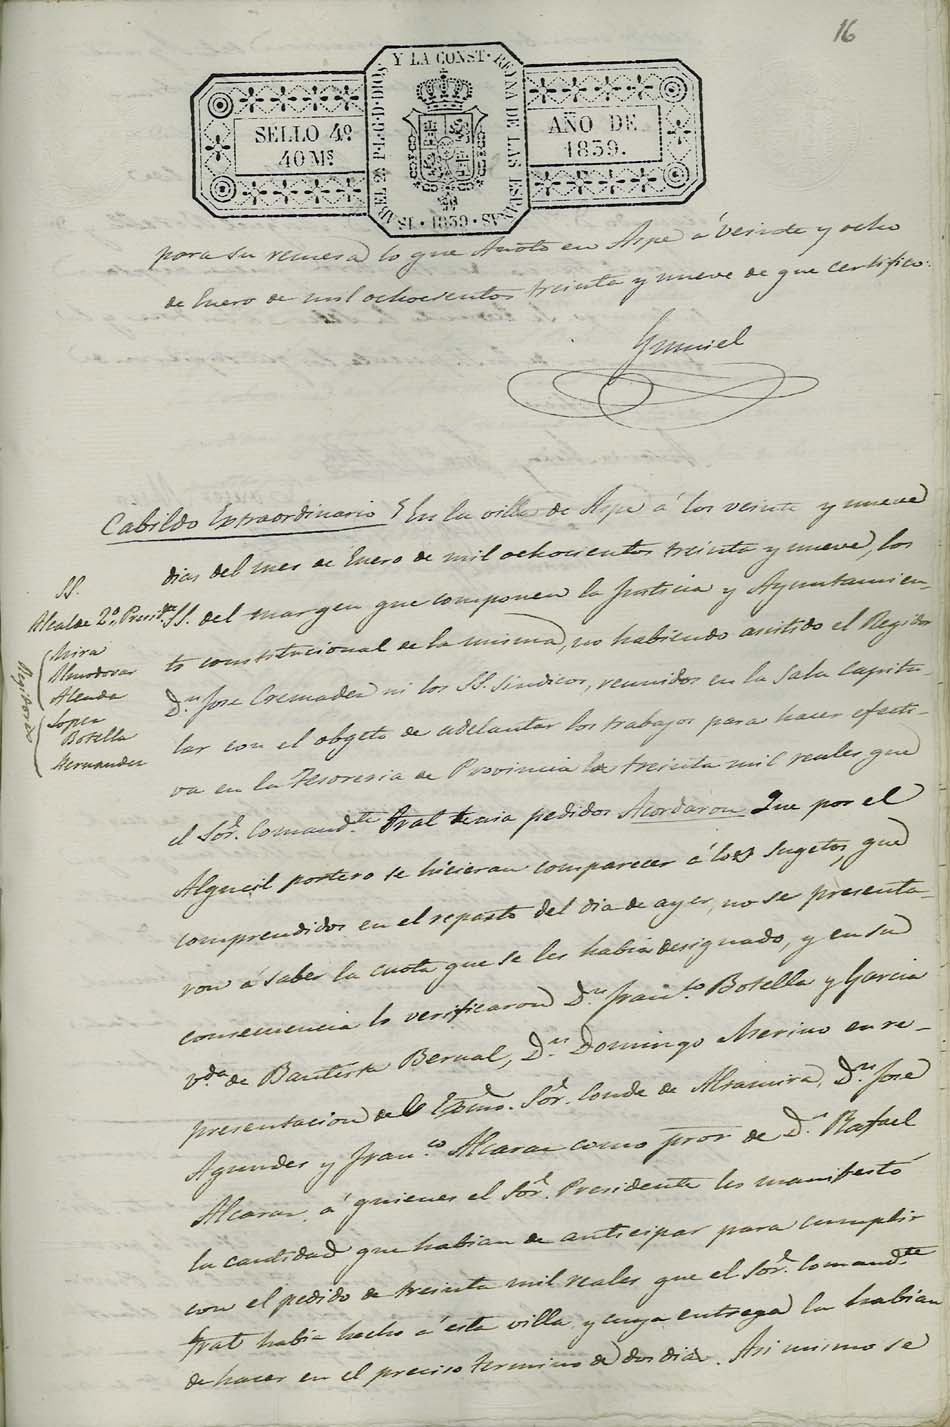 16
SELLO 4º
40 Mˢ
ISABEL 2ª P. L. G. D. DIOS. Y LA CONST. REYNA DE LAS ESPAÑAS · 1839 ·
AÑO DE
1839.
para su remesa lo que Anoto en Aspe á veinte y ocho
de Enero de mil ochocientos treinta y nueve de que certifico.
Cabildo Extraordinario } En la villa de Aspe á los veinte y nueve
dias del mes de Enero de mil ochocientos treinta y nueve, los
SS. del margen que componen la Justicia y Ayuntamien-
to constitucional de la misma, no habiendo asistido el Regidor
D.ⁿ Jose Cremades ni los SS. Sindicos, reunidos en la Sala Capitu-
lar con el obgeto de adelantar los trabajos para hacer efecti-
va en la Tesoreria de Provincia los treinta mil reales que
el Sor. Comand.te Gral tenia pedidos Acordaron Que por el
Alguacil portero se hicieran comparecer á los sugetos que
comprendidos en el reparto del dia de ayer, no se presenta-
ron á saber la cuota que se les habia designado, y en su
consecuencia lo verificaron D.ⁿ Fran.co Botella y Garcia
v.da de Bautista Bernal, D.ⁿ Domingo Merino en re-
presentacion del Exmo. Sor. Conde de Altamira, D.ⁿ Jose
Agundes y Fran.co Alcaraz como pror de D.ⁿ Rafael
Alcaraz, á quienes el Sor. Presidente les manifestó
la cantidad que habian de anticipar para cumplir
con el pedido de treinta mil reales que el Sor. Comand.te
Gral habia hecho á esta villa, y cuya entrega la habian
de hacer en el preciso termino de dos dias. Asi mismo se
SS.
Alcalde 2º Presid.te
Regidores
Mira
Almodovar
Alenda
Lopez
Botella
Hernandez